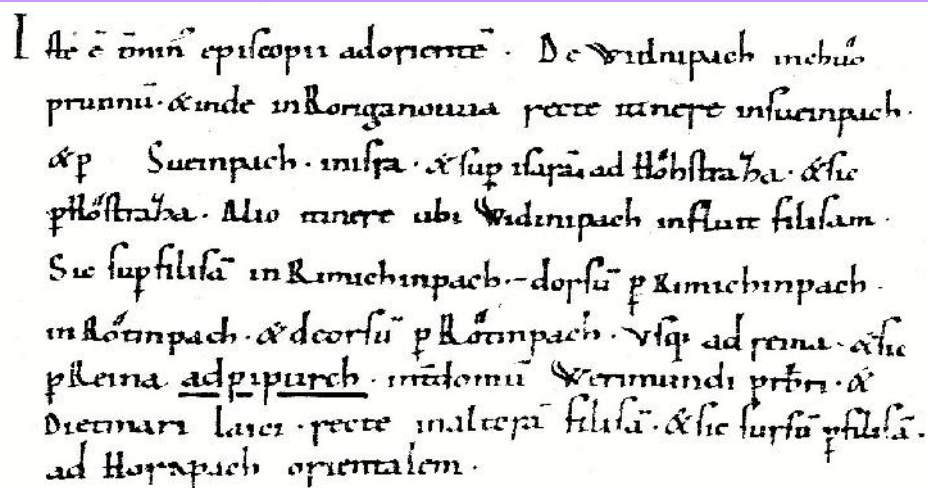 Iste ē t̄min᷒ episcopii ad orientē · De Widnipach in chuͦo
prunnū · & inde in Roriganouuia recte itinere in sueinpach ·
& ꝑ Sueinpach · in isra · & suꝑ isarā ad Hoͦhstraᷓza · & sic
ꝑ Hoͦstraza · Alio itinere ubi Widinipach influit filisam ·
Sic suꝑ filisā in Rimichinpach · dorsū ꝑ Rimichinpach ·
in Roͦtinpach · & deorsū ꝑ Roͦtinpach · Vsq; ad reina · & sic
ꝑ Reina ad pipurch · int̄ domū Werimundi prb̄ri · &
Dietmari laici · recte in alterā filisā · & sic sursū ꝑ filisā ·
ad Horapach orientalem ·